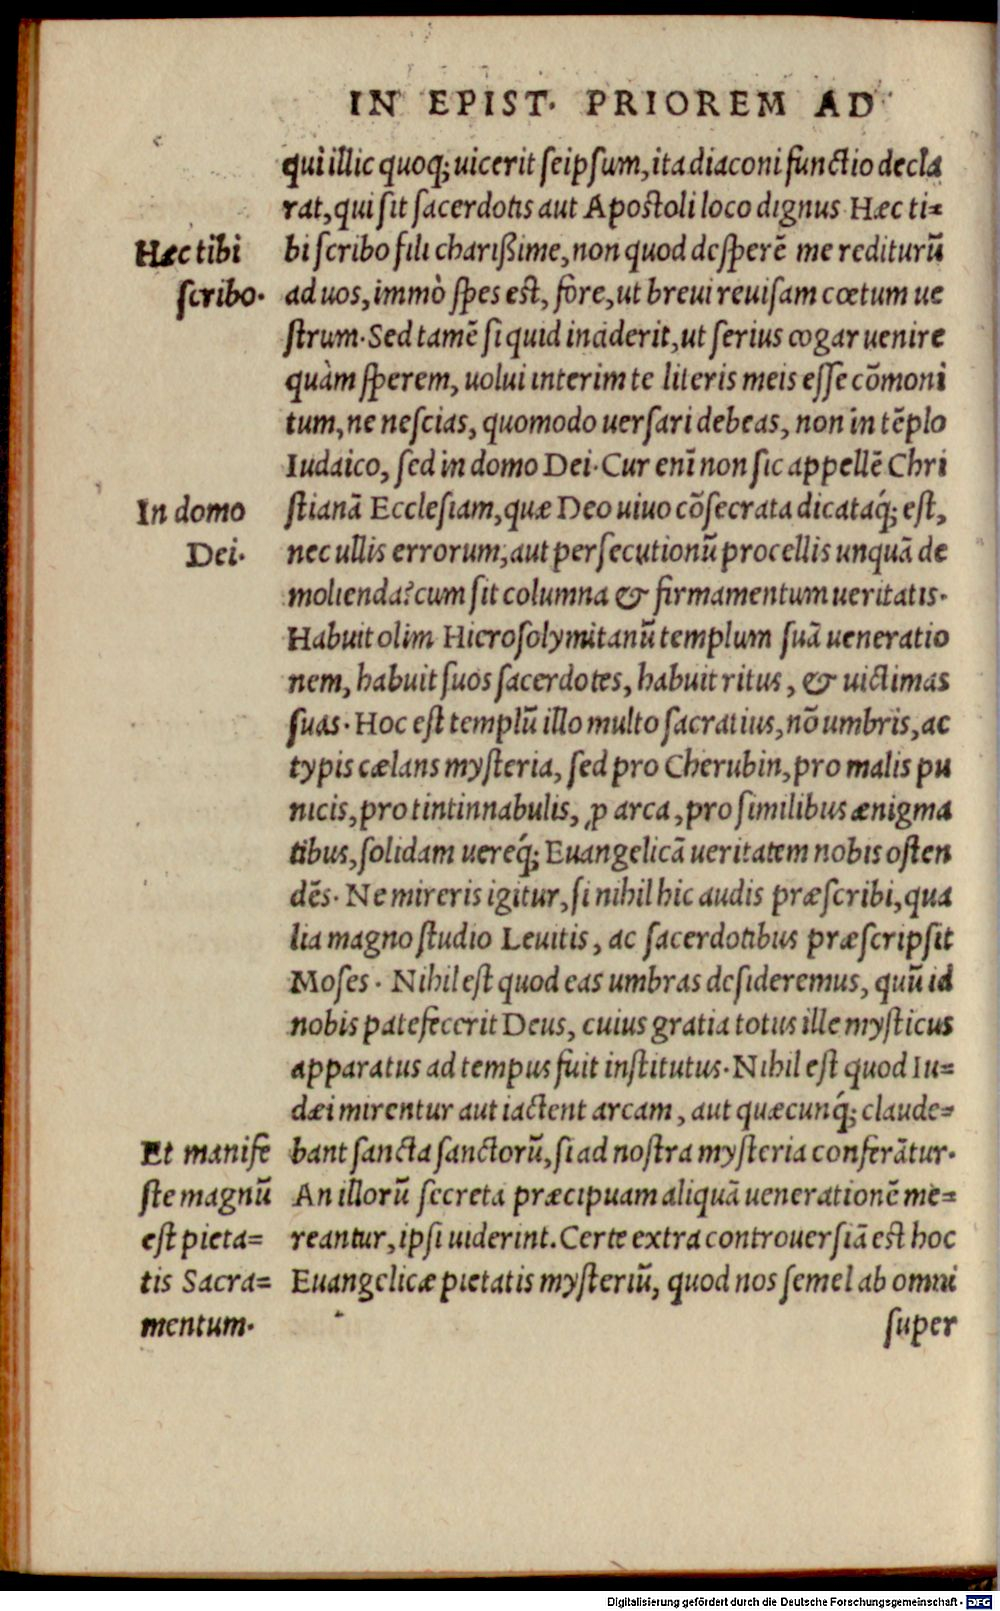 IN EPIST. PRIOREM AD
qui illic quoq; uicerit seipsum, ita diaconi functio decla
rat, qui sit sacerdotis aut Apostoli loco dignus Hæc ti=
Hæc tibi
scribo.
bi scribo fili charißime, non quod desperē me rediturū
ad uos, immò spes est, fore, ut breui reuisam cœtum ue
strum. Sed tamē si quid inciderit, ut serius cogar uenire
quàm sperem, uolui interim te literis meis esse cōmoni
tum, ne nescias, quomodo uersari debeas, non in tēplo
Iudaico, sed in domo Dei. Cur enī non sic appellē Chri
In domo
Dei.
stianā Ecclesiam, quæ Deo uiuo cōsecrata dicataq́; est,
nec ullis errorum, aut persecutionū procellis unquā de
molienda? cum sit columna & firmamentum ueritatis.
Habuit olim Hierosolymitanū templum suā ueneratio
nem, habuit suos sacerdotes, habuit ritus, & uictimas
suas. Hoc est templū illo multo sacratius, nō umbris, ac
typis cælans mysteria, sed pro Cherubin, pro malis pu
nicis, pro tintinnabulis, ꝓ arca, pro similibus ænigma
tibus, solidam uereq́; Euangelicā ueritatem nobis osten
dēs. Ne mireris igitur, si nihil hic audis præscribi, qua
lia magno studio Leuitis, ac sacerdotibus præscripsit
Moses. Nihil est quod eas umbras desideremus, quū id
nobis patefecerit Deus, cuius gratia totus ille mysticus
apparatus ad tempus fuit institutus. Nihil est quod Iu=
dæi mirentur aut iactent arcam, aut quæcunq́; claude=
Et manife
ste magnū
est pieta=
tis Sacra=
mentum.
bant sancta sanctorū, si ad nostra mysteria conferātur.
An illorū secreta præcipuam aliquā uenerationē me=
reantur, ipsi uiderint. Certe extra controuersiā est hoc
Euangelicæ pietatis mysteriū, quod nos semel ab omni
super
Digitalisierung gefördert durch die Deutsche Forschungsgemeinschaft - DFG